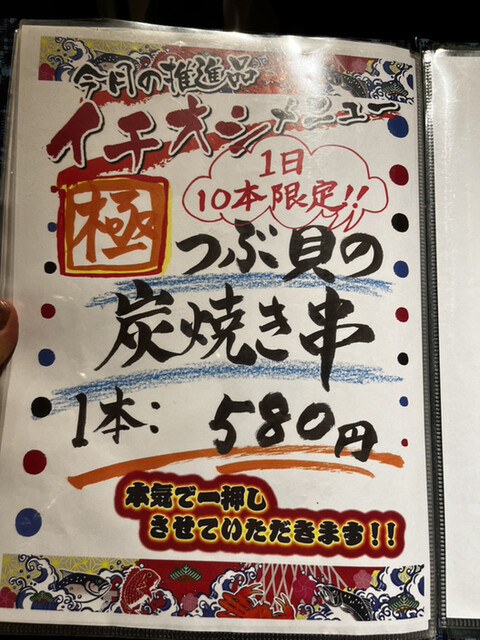 今月の推進品
イチオシメニュー
1日
10本限定!!
極
つぶ貝の
炭焼き串
1本: 580円
本気で一押し
させていただきます!!